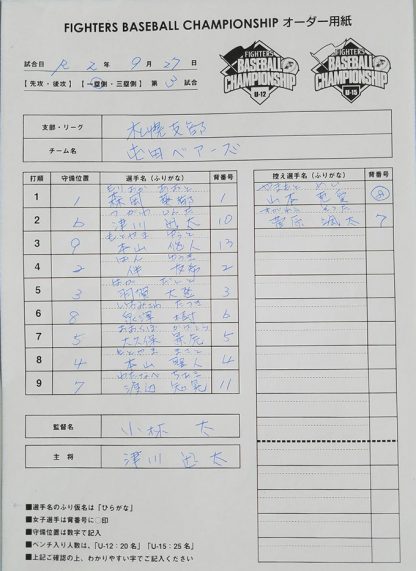 FIGHTERS BASEBALL CHAMPIONSHIP オーダー用紙
試合日 R 2 年 9 月 27 日
【 先攻・後攻 】 【 一塁側・三塁側 】 第 3 試合
FIGHTERS BASEBALL CHAMPIONSHIP U-12
FIGHTERS BASEBALL CHAMPIONSHIP U-15
支部・リーグ 札幌支部
チーム名 屯田ベアーズ
打順 守備位置 選手名(ふりがな) 背番号
1 1 もりおか 森岡 1
2 6 つがわ 津川 迅太 10
3 9 もとやま 本山 悠人 13
4 2 伴 2
5 3 はが 羽賀 3
6 8 樹 6
7 5 おおくぼ 大久保 5
8 4 もとやま まさと 本山 4
9 7 わたなべ 渡辺 11
控え選手名(ふりがな) 背番号
やまもと 山本 8
すがわら 菅原 颯太 7
監督名 小林 太
主 将 津川 迅太
■選手名のふり仮名は「ひらがな」
■女子選手は背番号に○印
■守備位置は数字で記入
■ベンチ入り人数は、「U-12:20名」「U-15:25名」
■上記ご確認の上、わかりやすい字でご記入ください